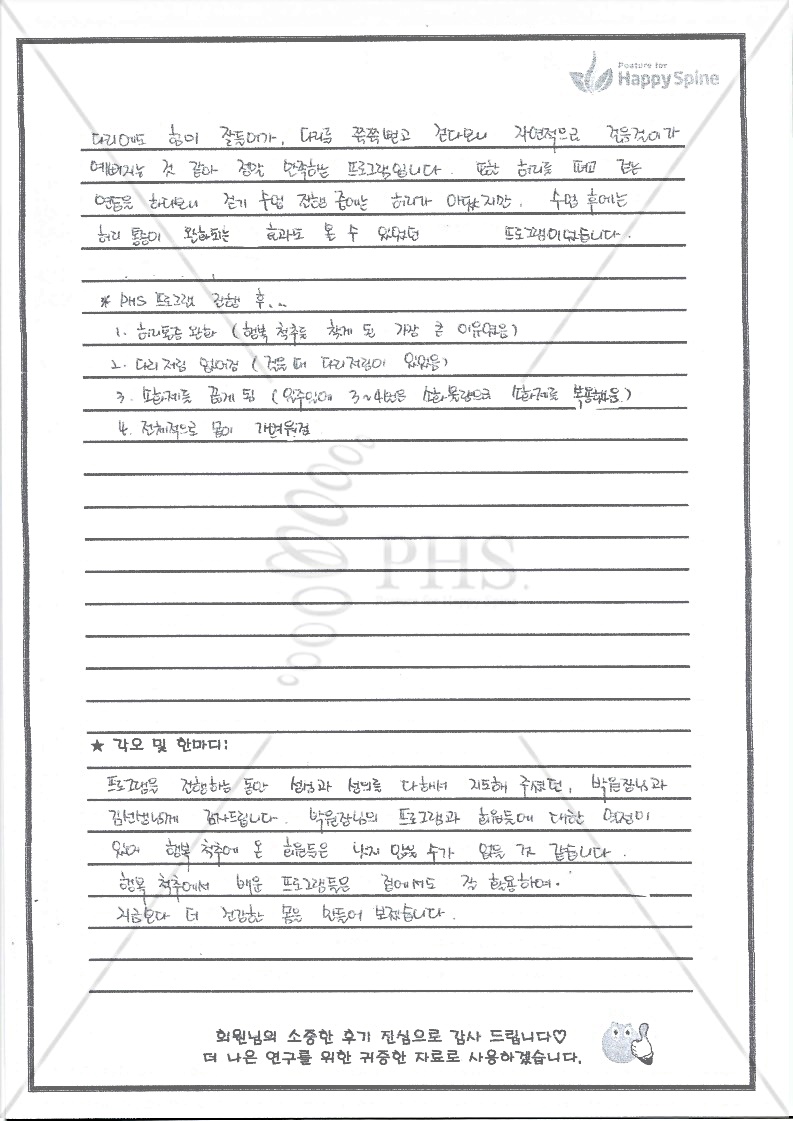 Posture for
Happy Spine
다리에도 힘이 잘들어가, 다리를 쭉쭉뻗고 걷다보니 자연적으로 걸음걸이가
예뻐지는 것 같아 정말 만족하는 프로그램입니다. 또한 허리를 펴고 걷는
연습을 하다보니 걷기 수업 진행 중에는 허리가 아팠지만, 수업 후에는
허리 통증이 완화되는 효과도 볼 수 있었던 프로그램이었습니다.
* PHS 프로그램 진행 후...
1. 허리통증 완화 (행복 척추를 찾게 된 가장 큰 이유였음)
2. 다리저림 없어짐 (걸을 때 다리저림이 있었음)
3. 소화제를 끊게 됨 (일주일에 3~4번은 소화불량으로 소화제를 복용했음)
4. 전체적으로 몸이 가벼워짐
PHS.
★ 각오 및 한마디!
프로그램을 진행하는 동안 성심과 성의를 다해서 지도해 주셨던, 박원장님과
김선생님께 감사드립니다. 박원장님의 프로그램과 회원들에 대한 열정이
있어 행복 척추에 온 회원들은 낫지 않을 수가 없을 것 같습니다.
행복 척추에서 배운 프로그램들은 집에서도 잘 활용하여.
지금보다 더 건강한 몸을 만들어 보겠습니다.
회원님의 소중한 후기 진심으로 감사 드립니다♡
더 나은 연구를 위한 귀중한 자료로 사용하겠습니다.